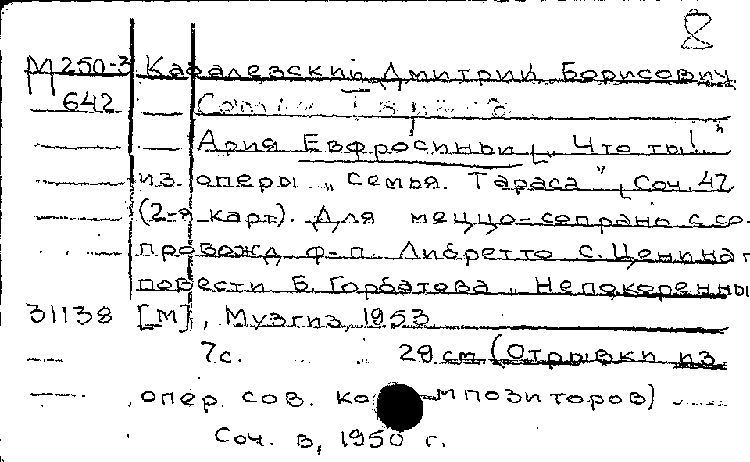 8
М 250-3 Кабалевский, Дмитрий Борисович.
642 Семья Тараса
Ария Евфросиньи „Что ты!..."
из оперы „Семья Тараса", соч. 47
(2-я карт). Для меццо-сопрано с со-
провожд ф-п. Либретто С. Ценина п
повести Б. Горбатова „Непокоренны
31138 [М], Музгиз, 1953
7с. 29 см (Отрывки из
опер сов. композиторов)
Соч. в, 1950 г.